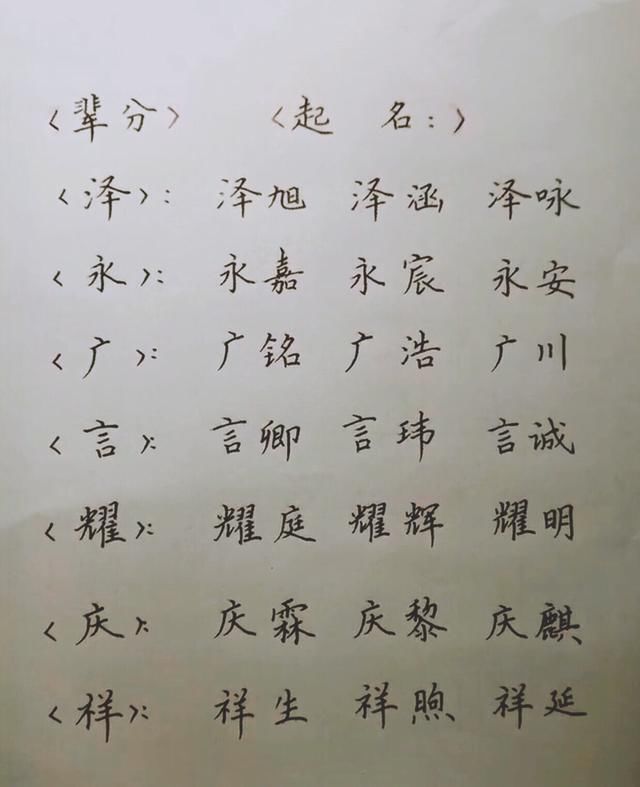 <辈分> <起 名:>
<泽>: 泽旭 泽涵 泽咏
<永>: 永嘉 永宸 永安
<广>: 广铭 广浩 广川
<言>: 言卿 言玮 言诚
<耀>: 耀庭 耀辉 耀明
<庆>: 庆霖 庆黎 庆麒
<祥>: 祥生 祥煦 祥延